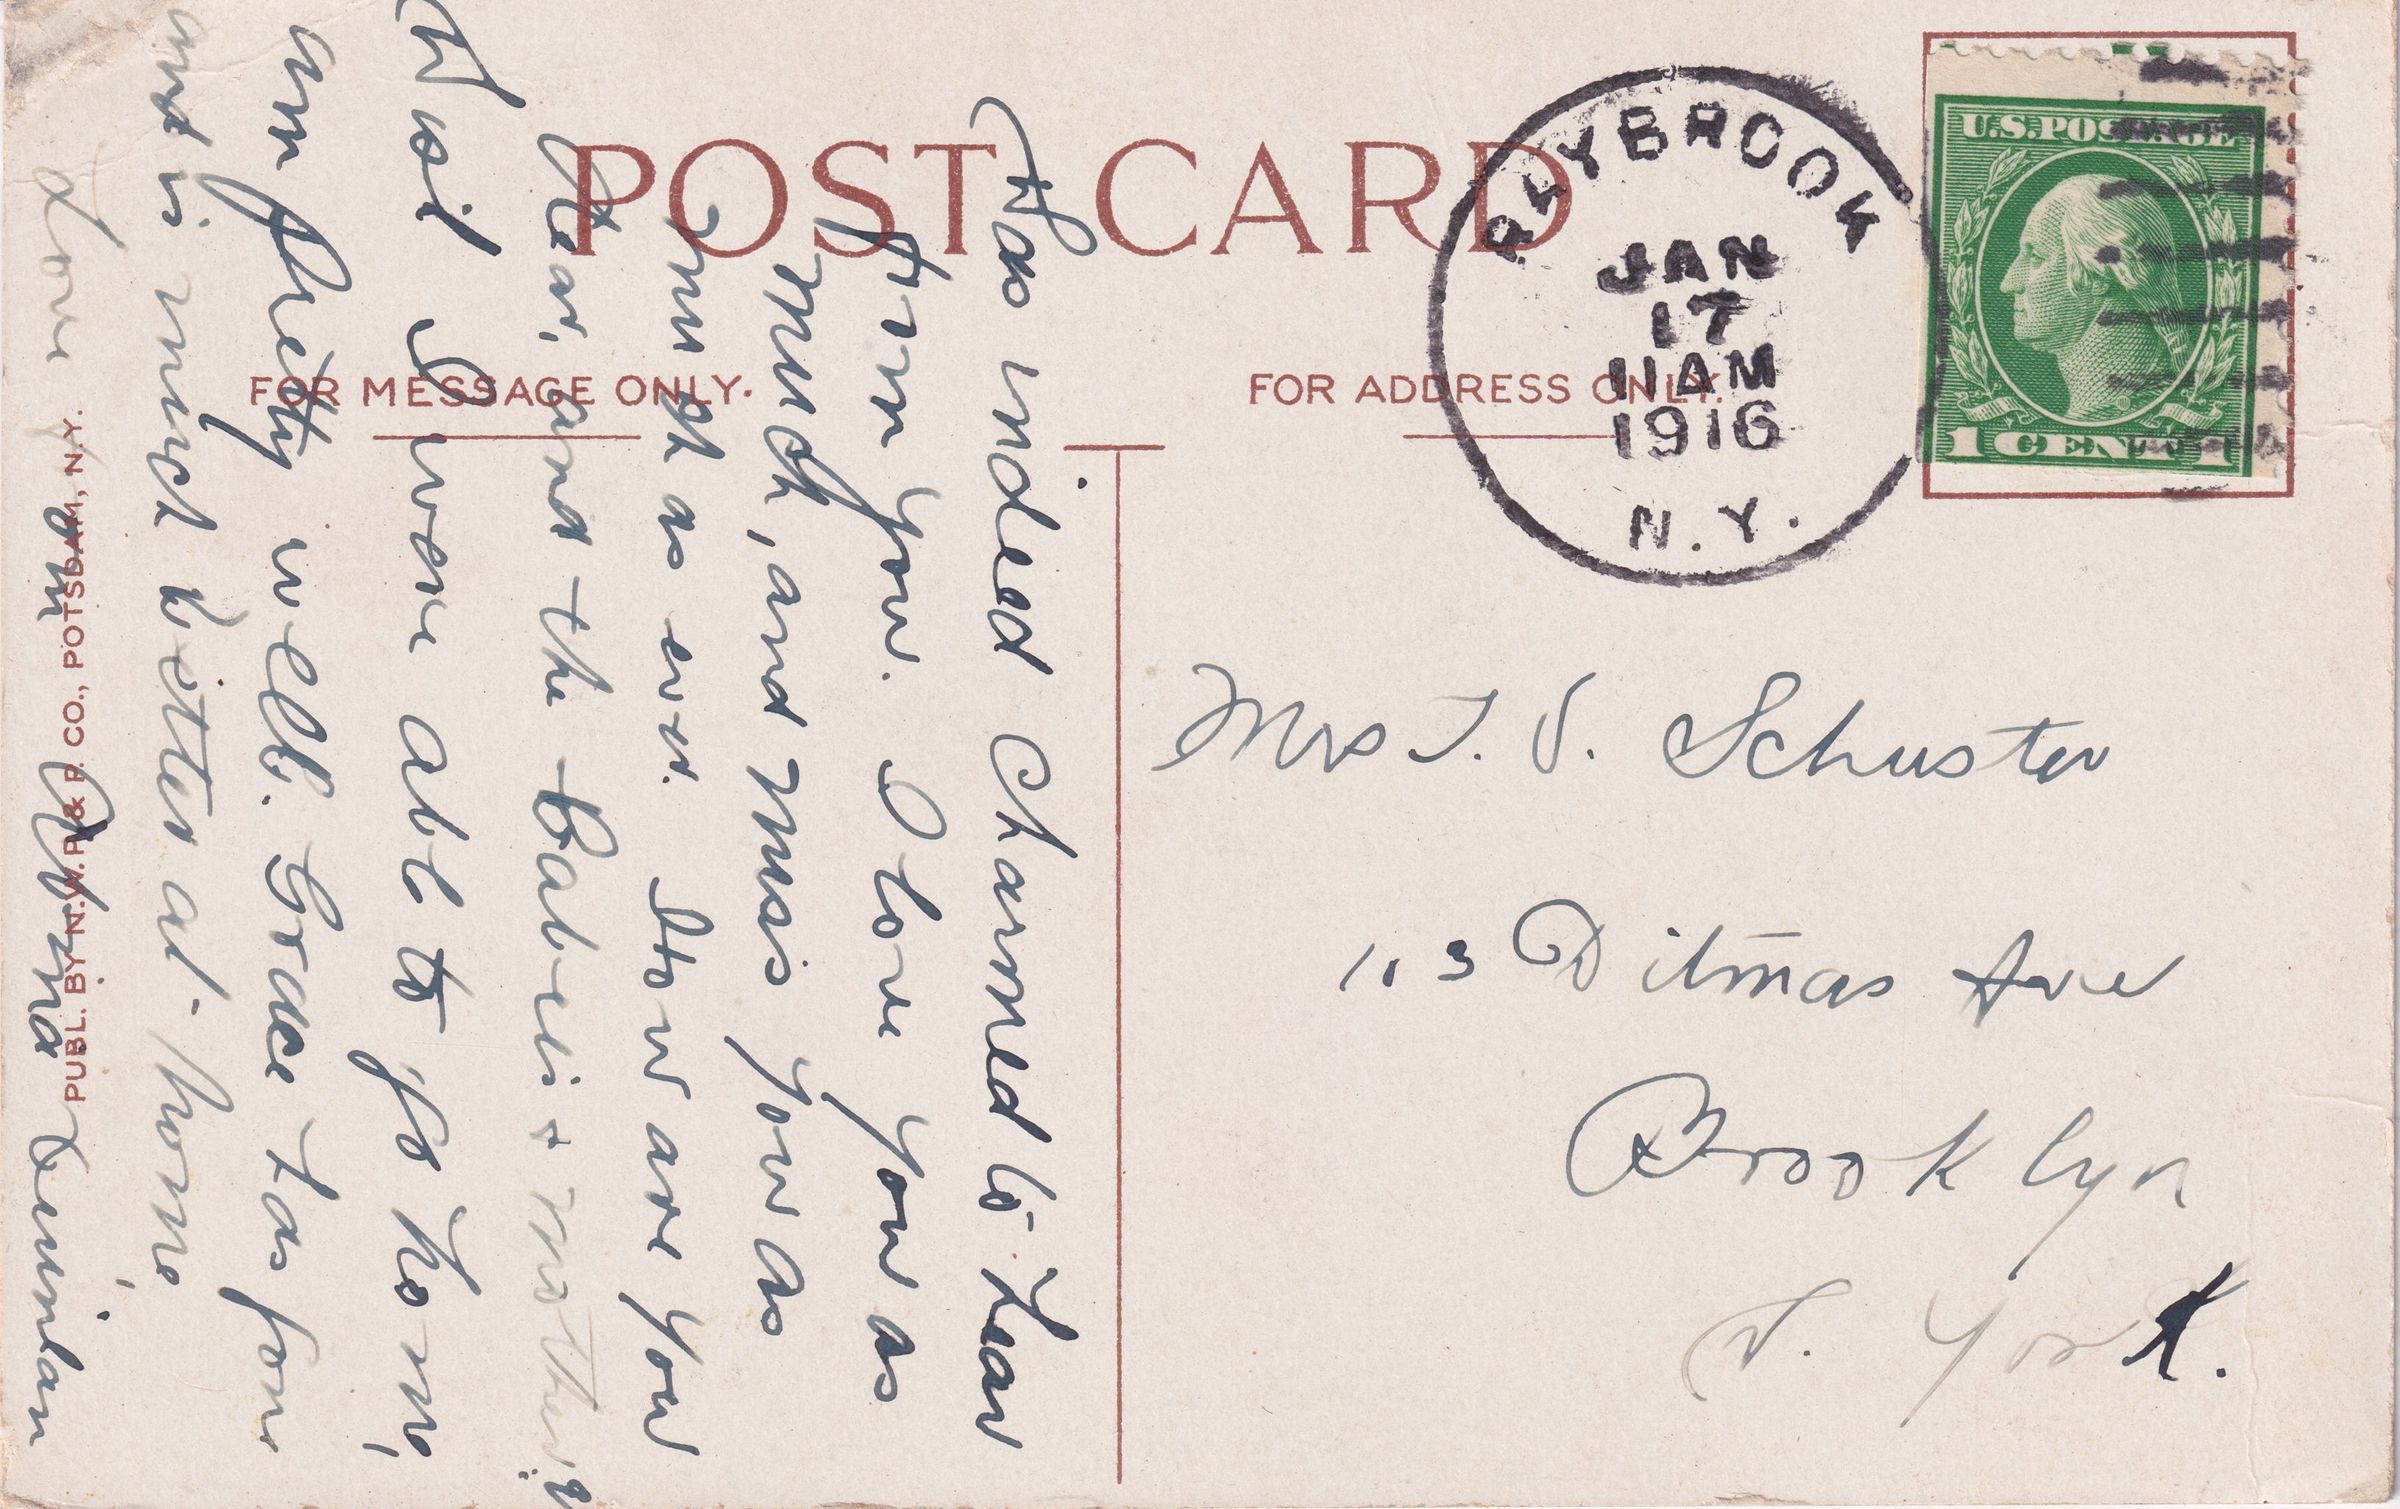 POST CARD
FOR MESSAGE ONLY.
FOR ADDRESS ONLY.
RAYBROOK
JAN
17
11 AM
1916
N.Y.
U.S. POSTAGE
1 CENT 1
Was indeed charmed to hear
from you. I love you as
much, and miss you as
much as ever. How are you
dear, and the babies & mother?
Wish I were able to go home,
am pretty well. Grace has gone
and is much better at home,
Love
PUBL. BY N.W.P. & P. CO., POTSDAM, N.Y.
Mrs T. J. Schuster
115 Ditmas Ave
Brooklyn
N. York.